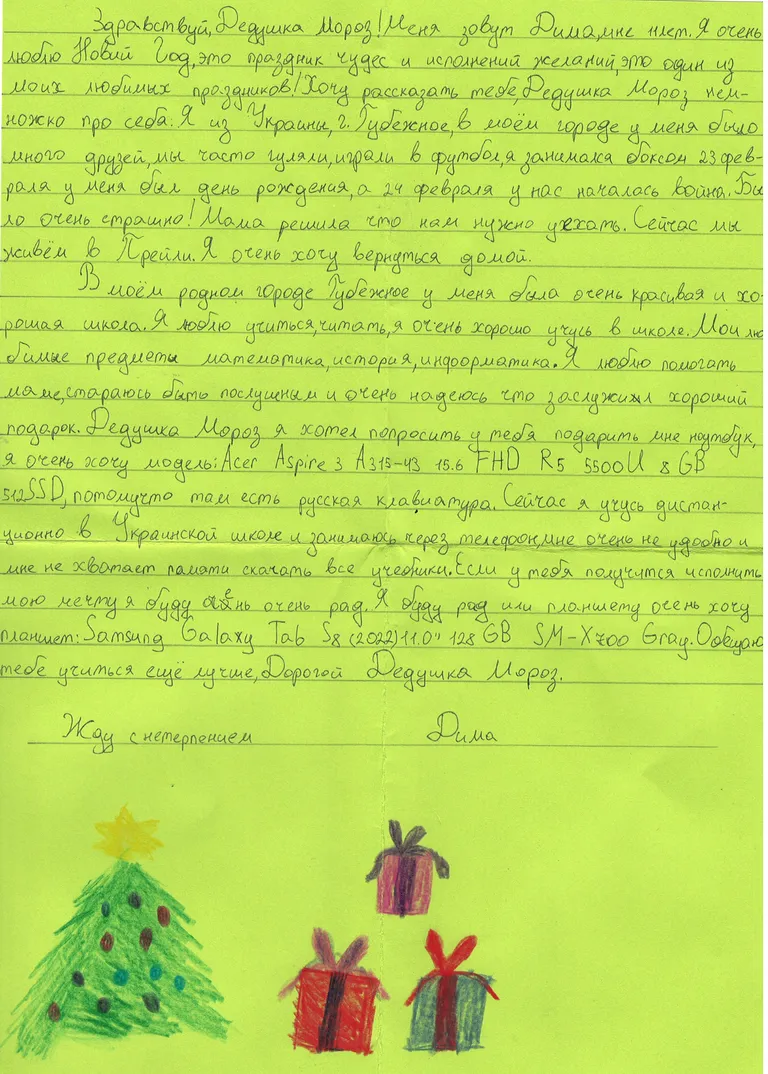 Здравствуй, Дедушка Мороз! Меня зовут Дима, мне лет. Я очень
люблю Новий Год, это праздник чудес и исполнений желаний, это один из
моих любимых праздников! Хочу рассказать тебе, Дедушка Мороз нем-
ножко про себя: Я из Украины, г. Губежное, в моём городе у меня было
много друзей, мы часто гуляли, играли в футбол, я занимался боксом 23 фев-
раля у меня был день рождения, а 24 февраля у нас началась война. Бы
ло очень страшно! Мама решила что нам нужно уехать. Сейчас мы
живём в Прейли. Я очень хочу вернуться домой.
В моём родном городе Губежное у меня была очень красивая и хо-
рошая школа. Я люблю учиться, читать, я очень хорошо учусь в школе. Мои лю
бимые предметы математика, история, информатика. Я люблю помогать
маме, стараюсь быть послушным и очень надеюсь что заслужил хороший
подарок. Дедушка Мороз я хотел попросить у тебя подарить мне ноутбук,
я очень хочу модель: Acer Aspire 3 A315-43 15.6 FHD R5 5500U 8 GB
512SSD, потомучто там есть русская клавиатура. Сейчас я учусь дистан-
ционно в Украинской школе и занимаюсь через телефон, мне очень не удобно и
мне не хватает памяти скачать все учебники. Если у тебя получится исполнить
мою мечту я буду очень очень рад. Я буду рад или планшету очень хочу
планшет: Samsung Galaxy Tab S8 (2022) 11.0" 128 GB SM-X700 Gray. Обещаю
тебе учиться ещё лучше, Дорогой Дедушка Мороз.
Жду с нетерпением Дима